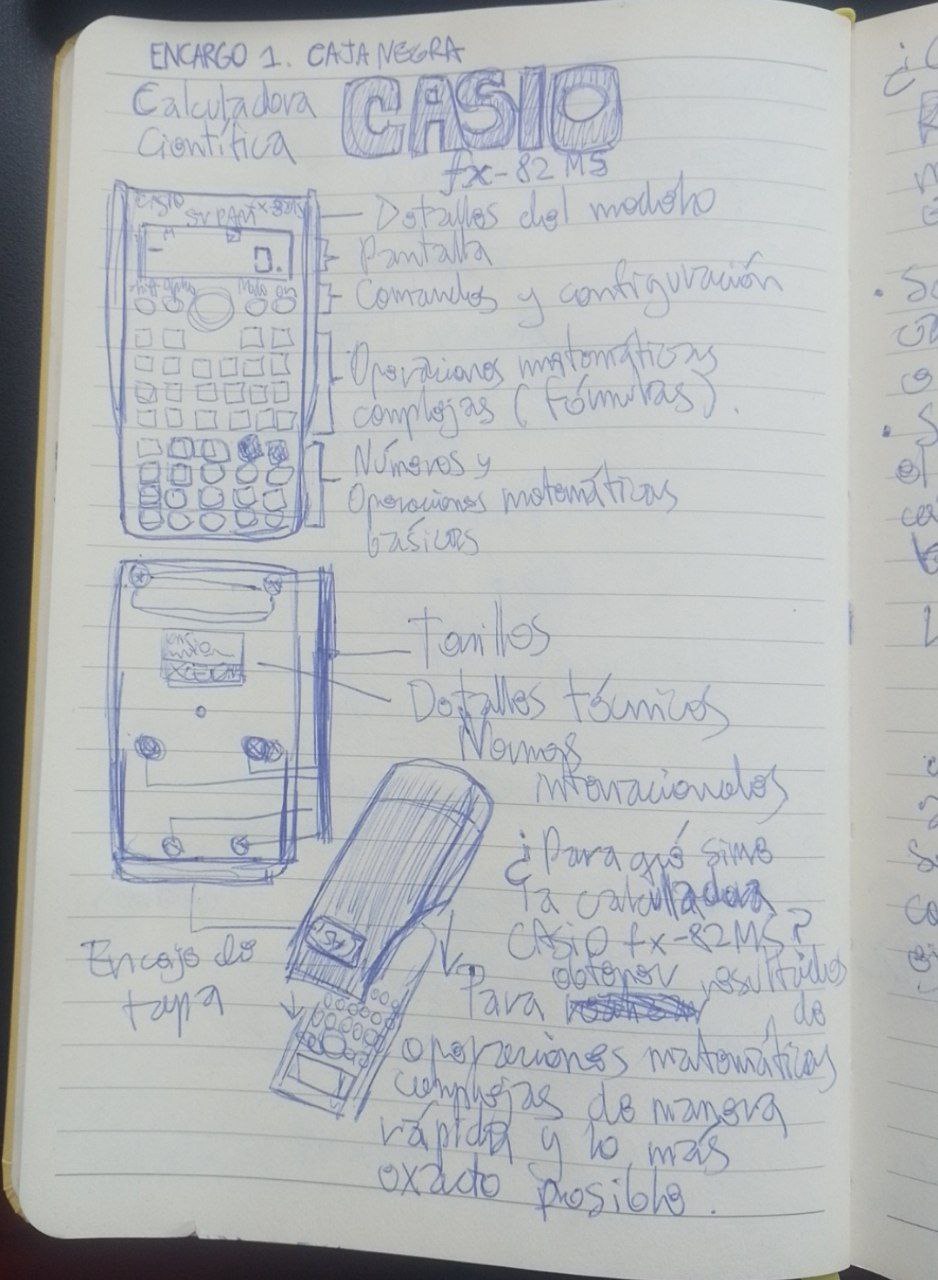 ENCARGO 1. CAJA NEGRA
Calculadora
Científica
CASIO
fx-82 MS
CASIO
fx-82MS
SVPAM
0.
shift alpha
Mode on
Detalles del modelo
Pantalla
Comandos y configuración
Operaciones matemáticas
complejas (fórmulas).
Números y
Operaciones matemáticas
básicas
Tonillos
Detalles técnicos
Normas
internacionales
Encaje de
tapa
¿Para qué sirve
la calculadora
CASIO fx-82MS?
Para obtener resultados de
operaciones matemáticas
complejas de manera
rápida y lo más
exacto posible.